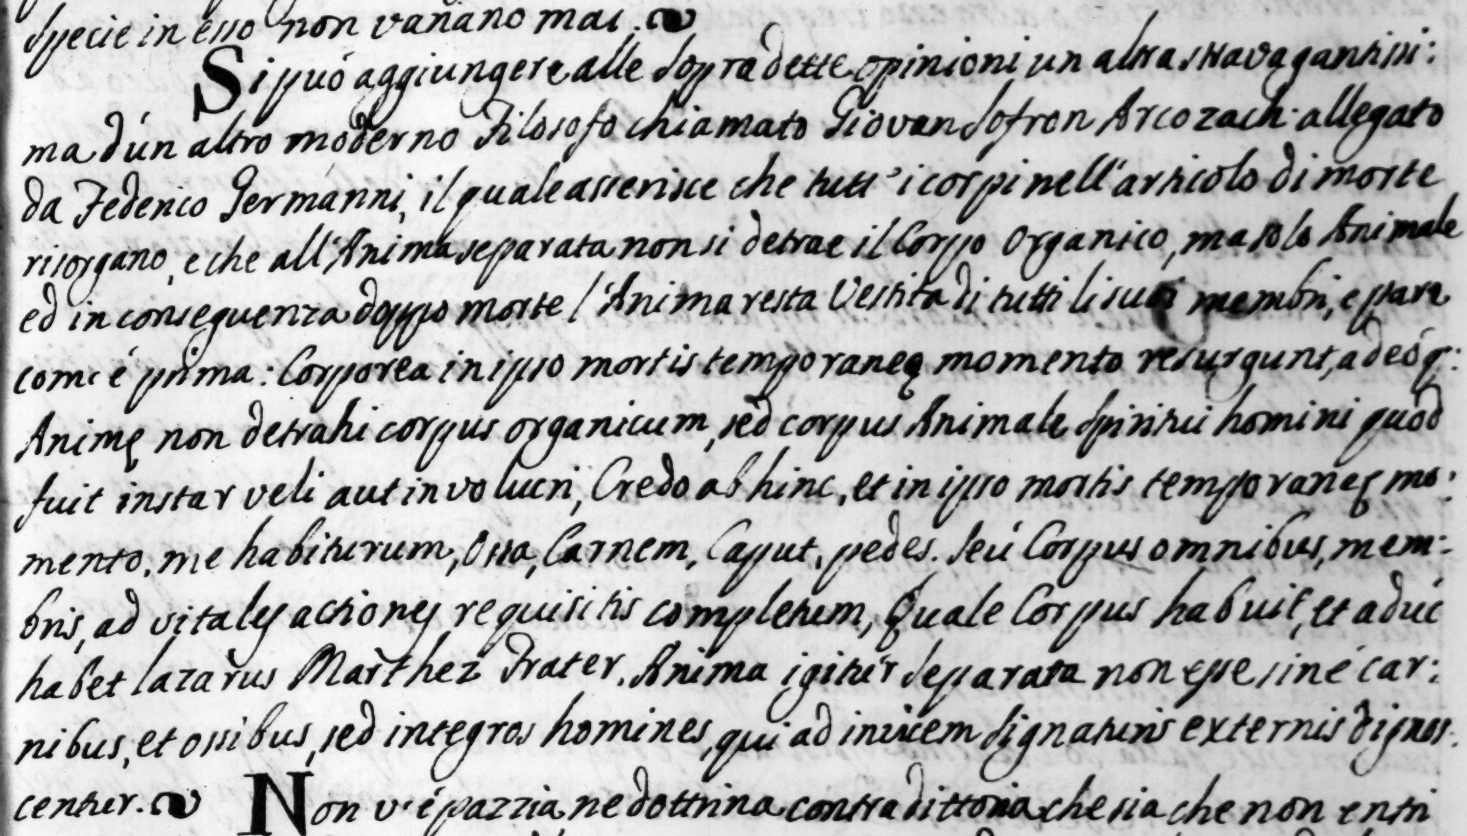 specie in esso non variano mai.
Si può aggiungere alle sopradette opinioni un altra stravagantissi:
ma d'ún altro moderno Filosofo chiamato Giovan Sofron Arcozach. allegato
da Federico Germanni, il quale asserisce che tutt'i corpi nell'articolo di morte
risorgano, e che all'Anima separata non si detrae il Corpo Organico, ma solo Animale
ed in conseguenza doppo morte l'Anima resta Vestita di tutti li suoi membri, e pare
com'é prima: Corporea in ipso mortis temporaneę momento resurgunt, adeó q:
Animę non detrahi corpus organicum, sed corpus Animale Spiritui homini quod
fuit instar veli aut involucri, Credo ab hinc, et in ipso mortis temporaneę mo:
mento, me habiturum, Ossa, Carnem, Caput, pedes. Seú Corpus omnibus, mem:
bris, ad vitales actiones requisitis completum, Quale Corpus habuit, et aduc
habet lazarus Marthez Frater. Anima igitur separata non esse siné car:
nibus, et ossibus, sed integros homines, qui ad invicem signaturis externis dignos:
centur. Non v'é pazzia, ne dottrina contradittoria che sia che non entri